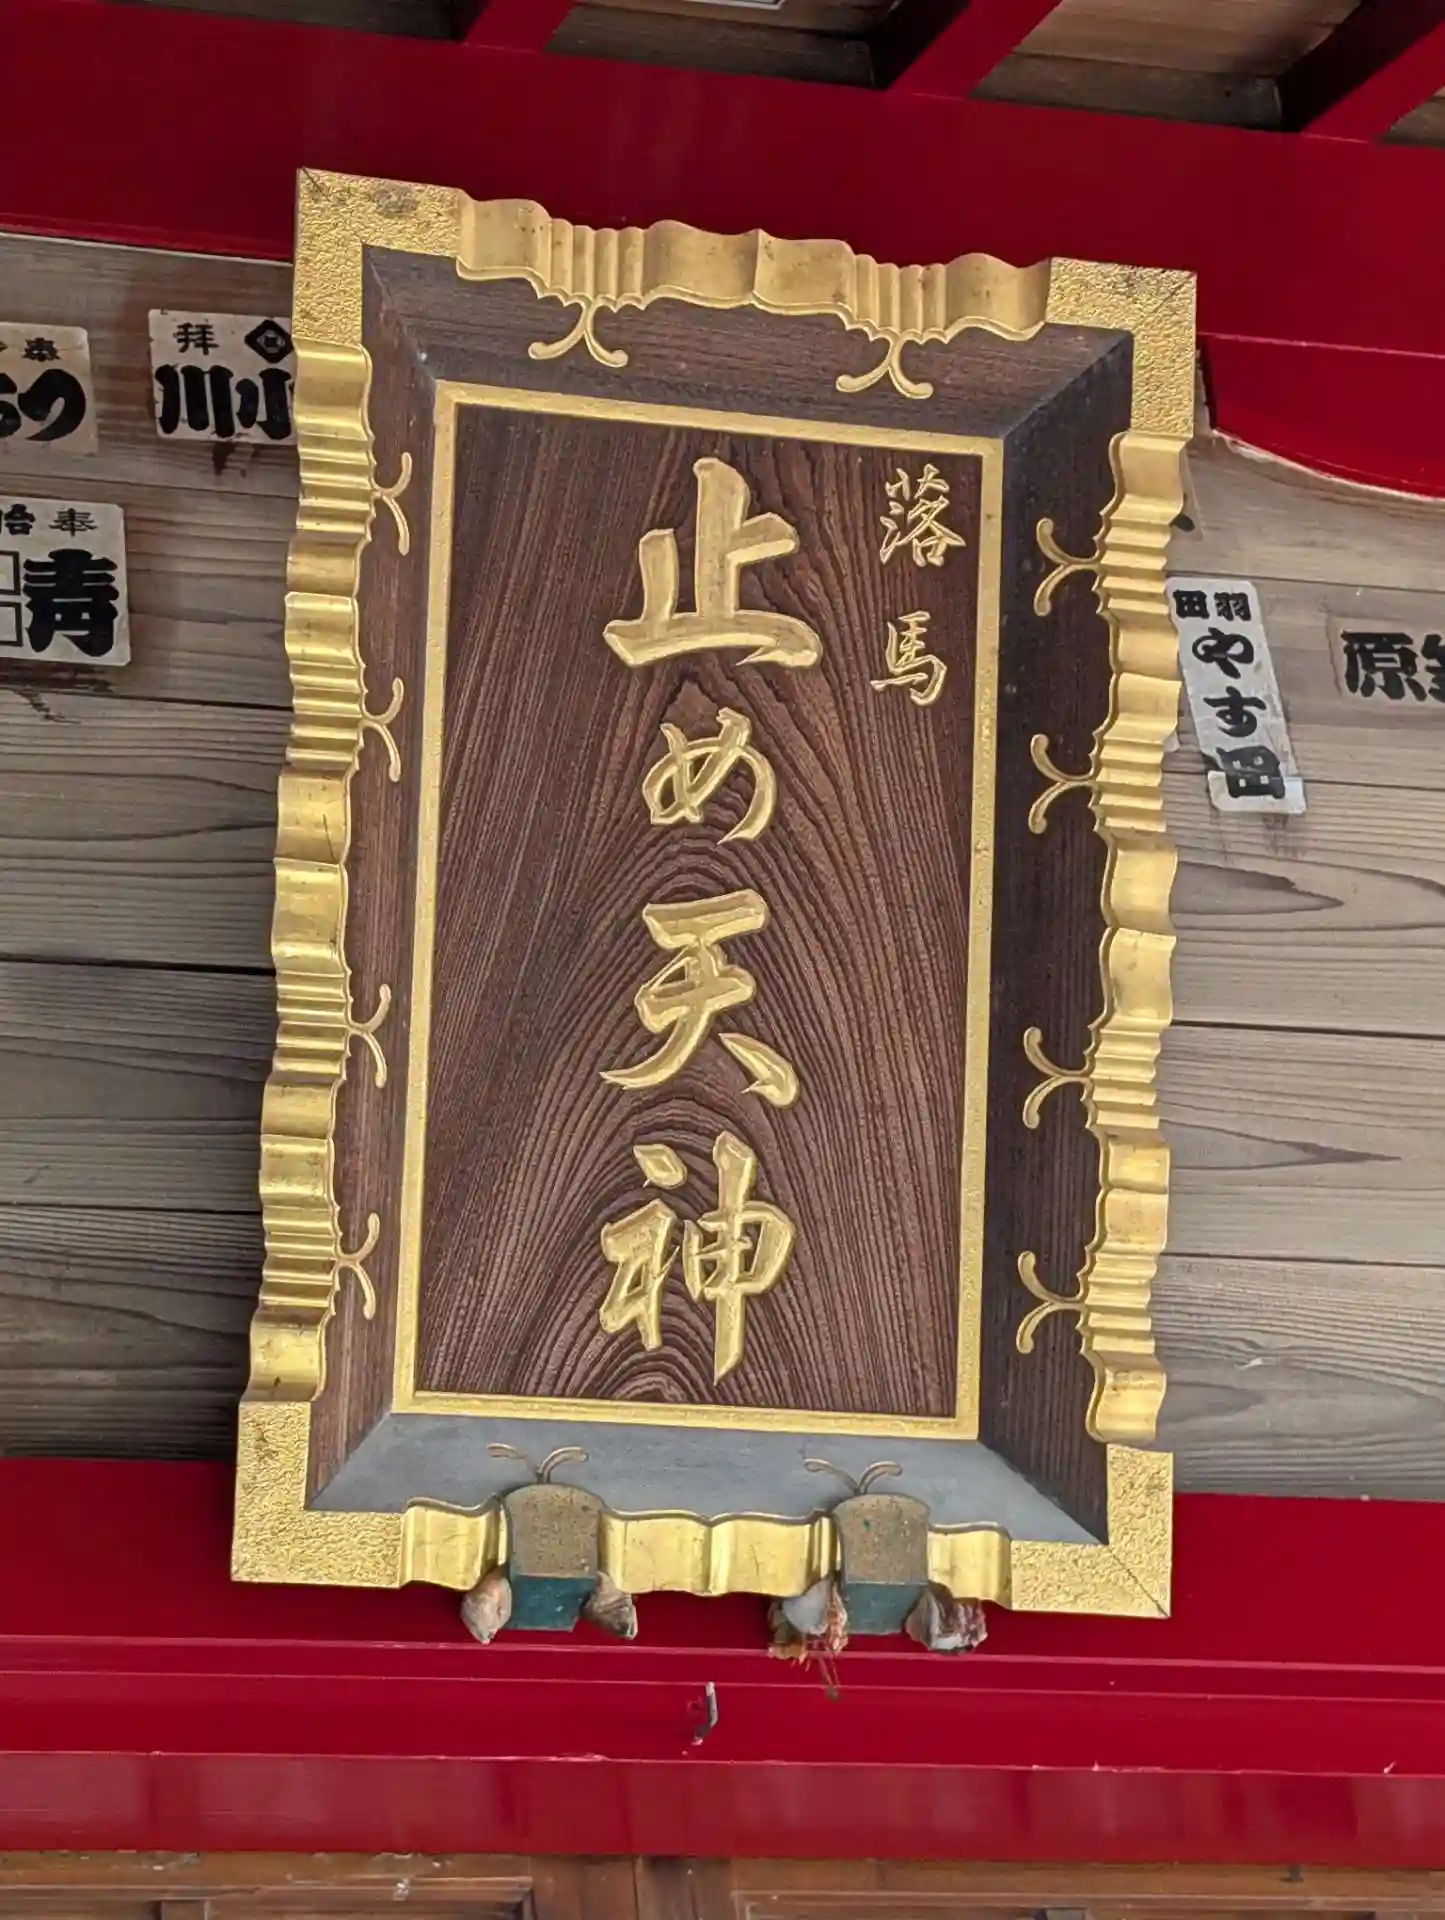 落馬
止め天神
奉
拝
川小
奉
青
羽田
やす田
原